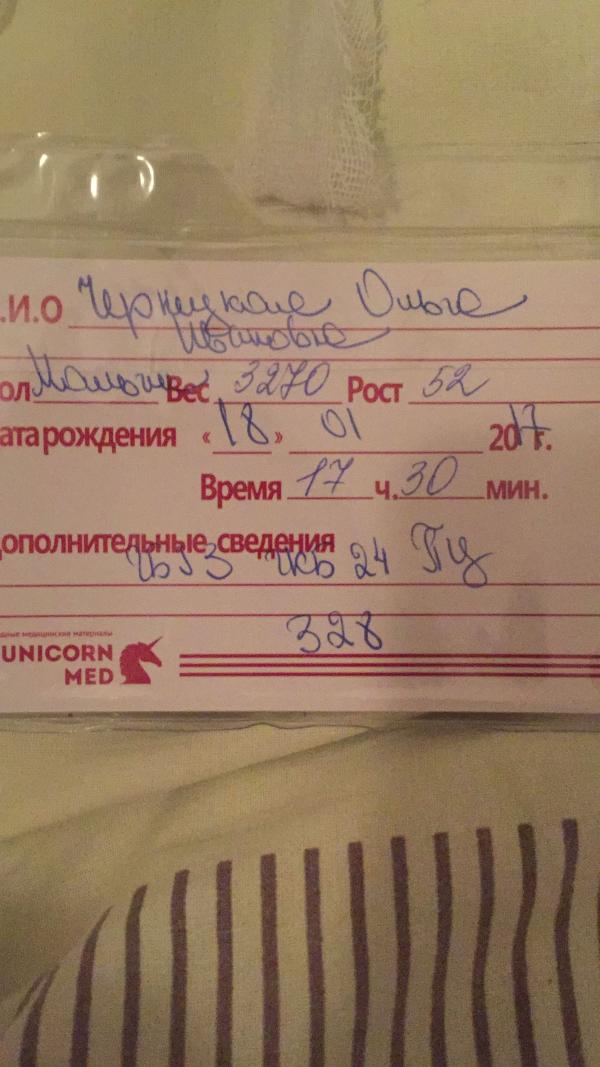 .И.О Чернецкая Ольга
Ивановна
ол Мальчик Вес 3270 Рост 52
ата рождения «18» 01 2017г.
Время 17 ч. 30 мин.
ополнительные сведения
ГБУЗ ГКБ 24 ПЦ
328
дные медицинские материалы
UNICORN
MED